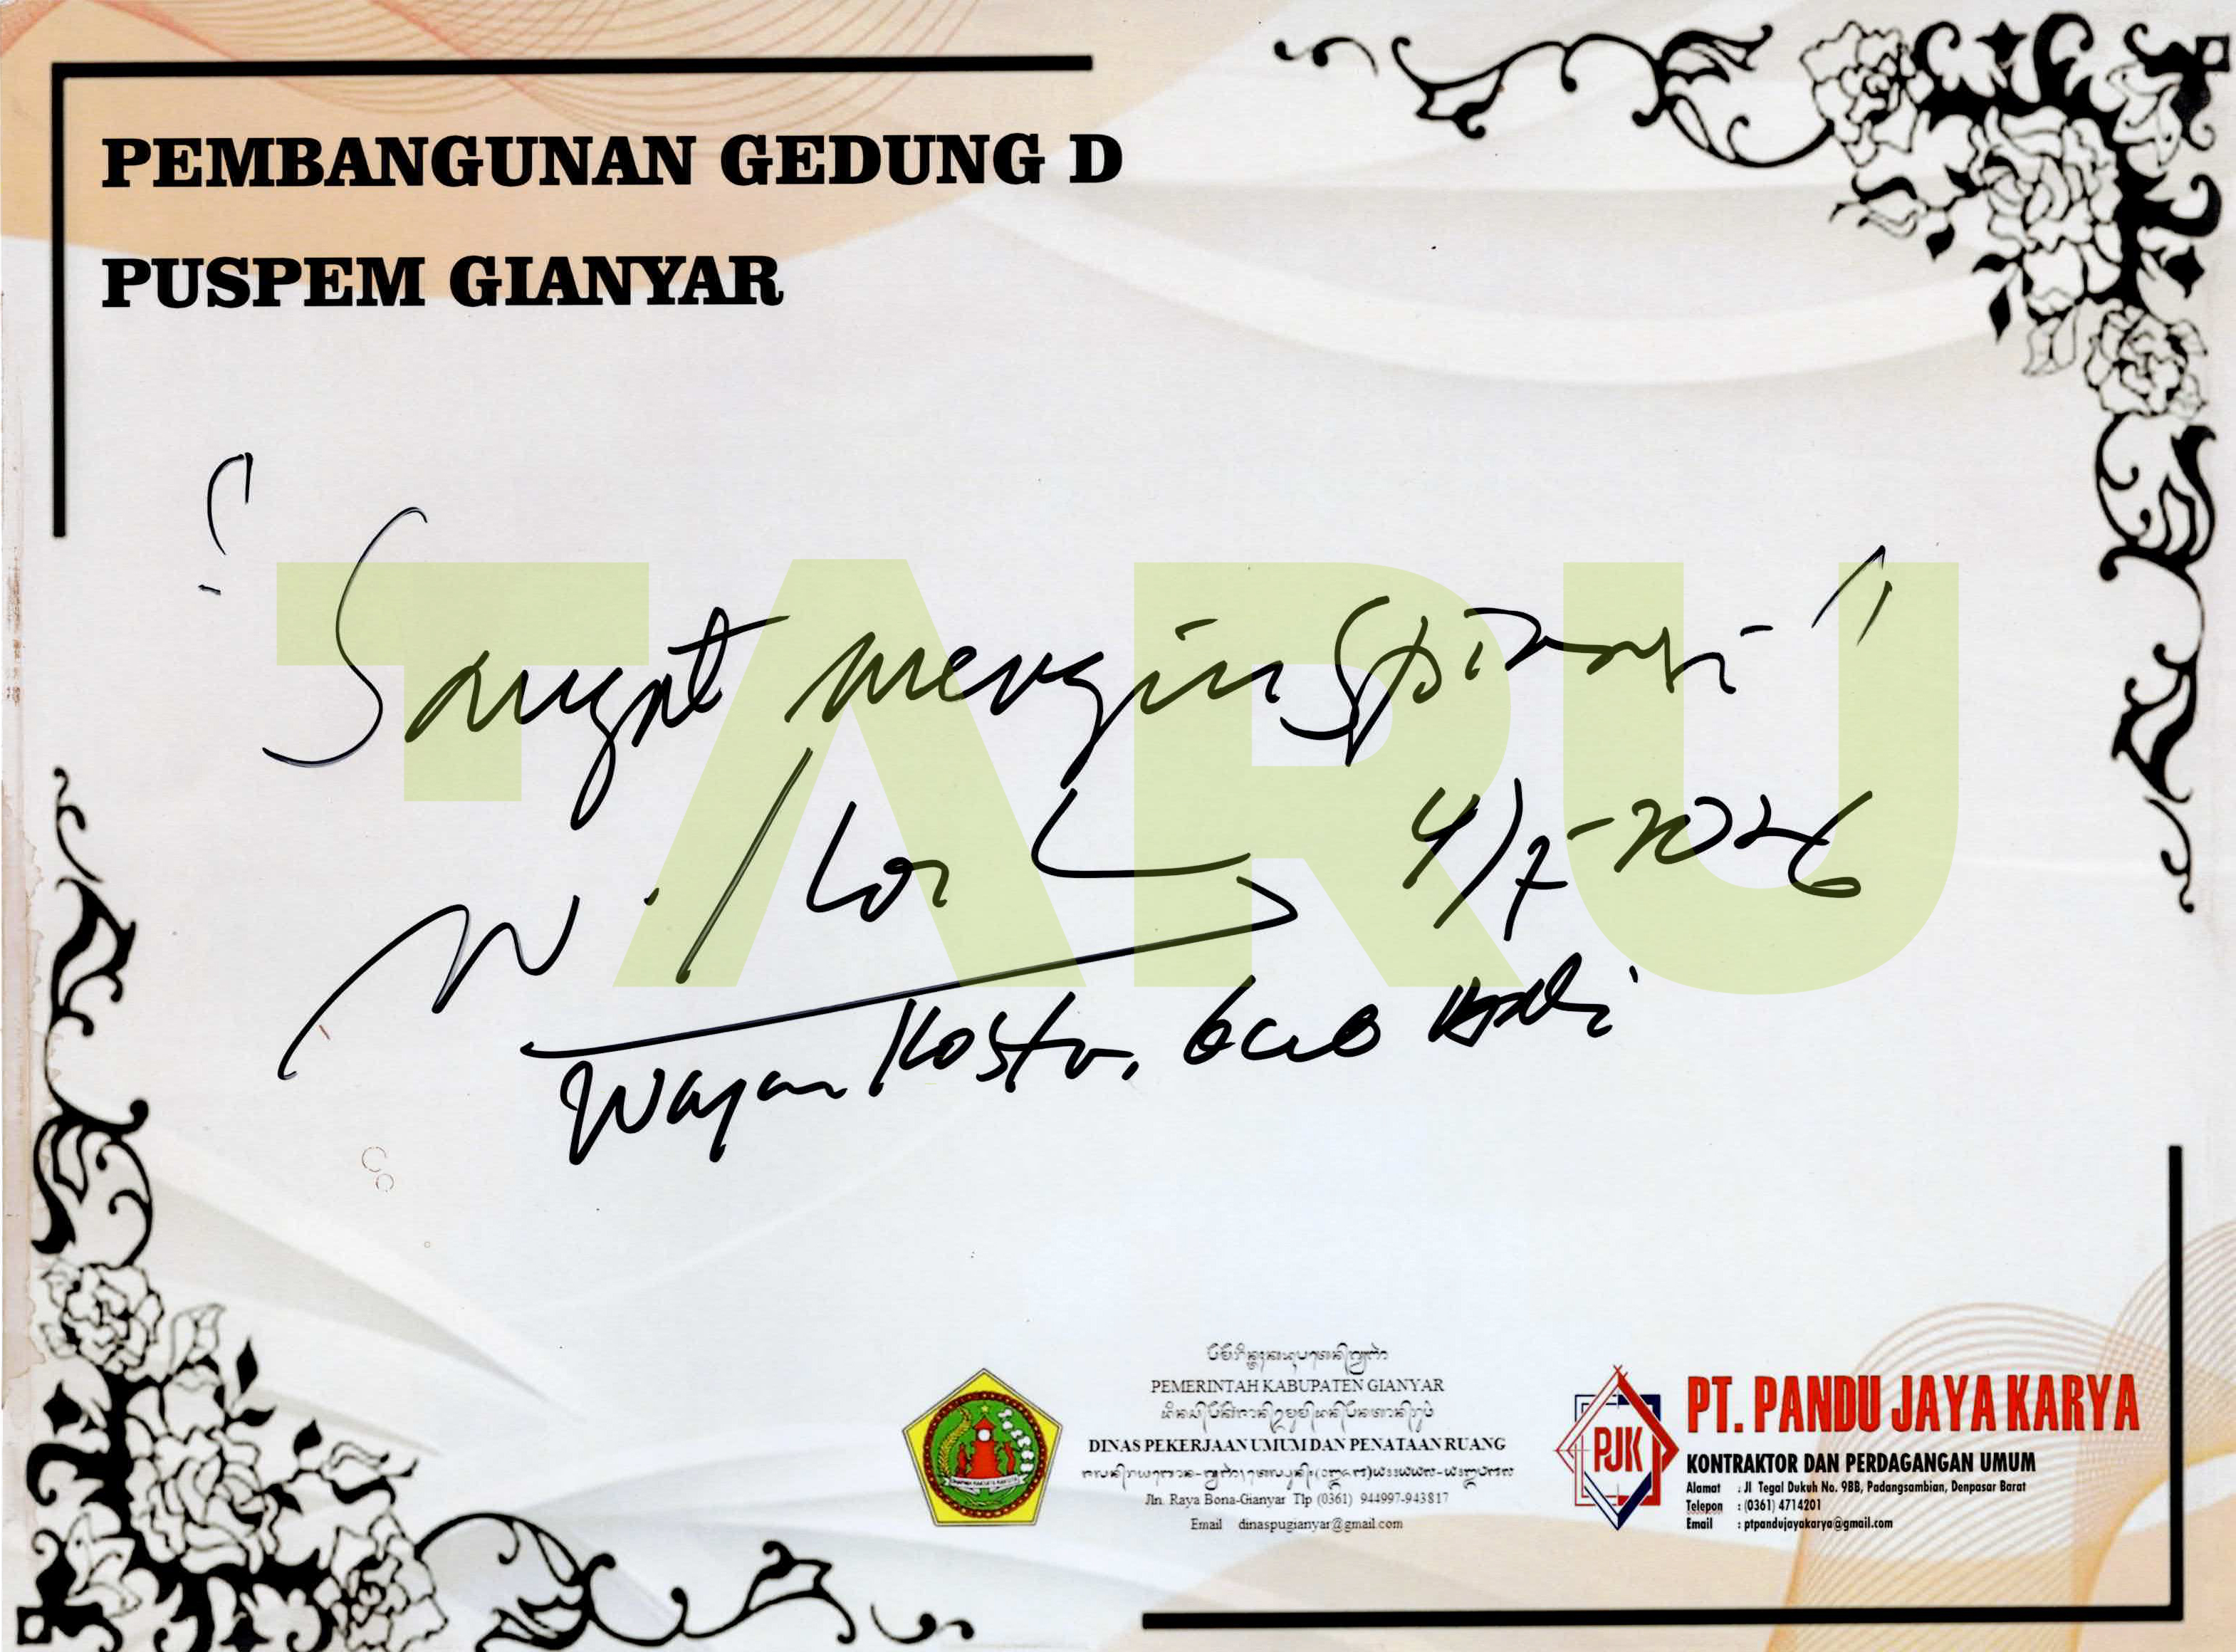 PEMBANGUNAN GEDUNG D
PUSPEM GIANYAR
"Sangat menginspirasi"
4/7-2026
Wayan Koster, Gub Bali
TARU
PEMERINTAH KABUPATEN GIANYAR
DINAS PEKERJAAN UMUM DAN PENATAAN RUANG
Jln. Raya Bona-Gianyar Tlp (0361) 944997-943817
Email dinaspugianyar@gmail.com
PJK
PT. PANDU JAYA KARYA
KONTRAKTOR DAN PERDAGANGAN UMUM
Alamat : Jl Tegal Dukuh No. 9BB, Padangsambian, Denpasar Barat
Telepon : (0361) 4714201
Email : ptpandujayakarya@gmail.com